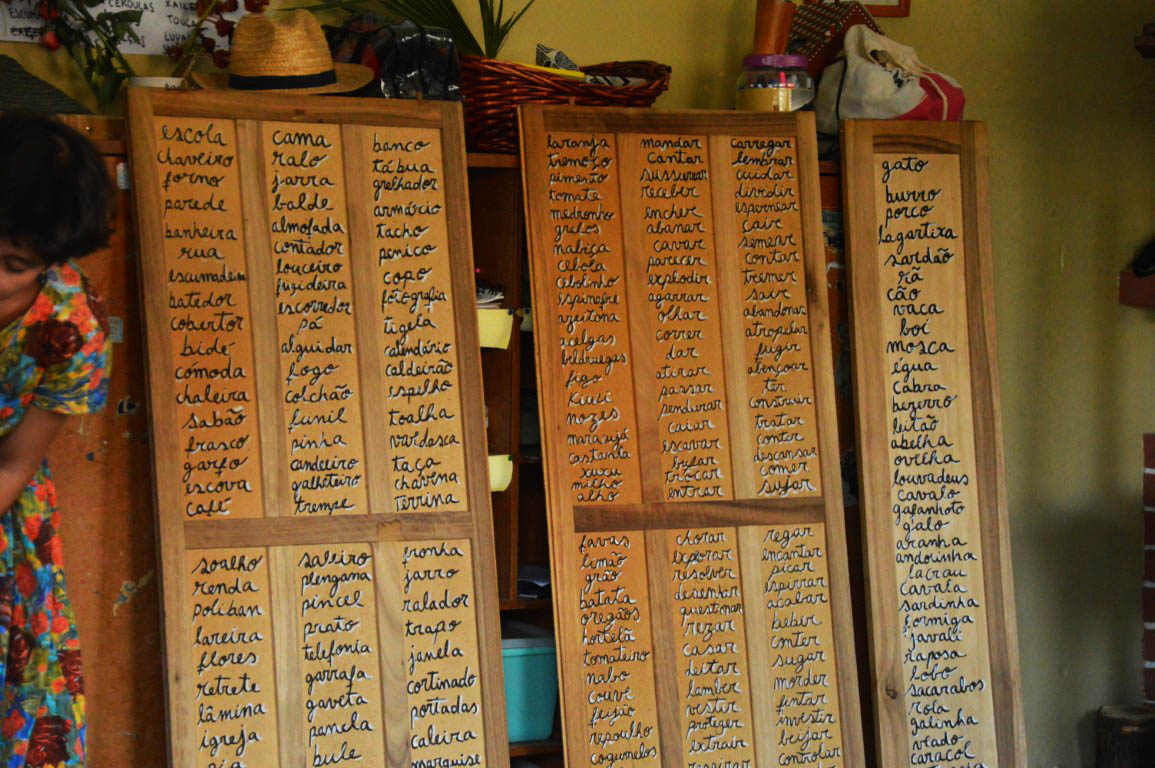 CEROULAS
TOUCA
LUVAS
escola
chaveiro
forno
parede
banheira
rua
escumadeira
batedor
cobertor
bidé
cómoda
chaleira
sabão
frasco
garfo
escova
café
cama
ralo
jarra
balde
almofada
contador
louceiro
frigideira
escorredor
pá
alguidar
fogo
colchão
funil
pinha
candeeiro
galheteiro
trempe
banco
tábua
grelhador
armário
tacho
penico
copo
fotografia
tigela
calendário
caldeirão
espelho
toalha
taça
chávena
terrina
soalho
renda
poliban
lareira
flores
retrete
lâmina
igreja
pia
saleiro
plengana
pincel
prato
telefonia
garrafa
gaveta
panela
bule
fronha
jarro
ralador
trapo
janela
cortinado
portadas
caleira
marquise
laranja
tremoço
pimento
tomate
medronho
grelos
nabiça
cebola
cebolinho
espinafre
azeitona
acelgas
beldruegas
figo
kiwi
nozes
maracujá
castanha
xuxu
milho
alho
mandar
cantar
sussurrar
receber
encher
abanar
cavar
parecer
explodir
agarrar
olhar
correr
dar
atirar
passar
pendurar
caiar
escavar
bular
trocar
entrar
carregar
lembrar
cuidar
dividir
espernear
cair
semear
contar
tremer
sair
abandonar
atropelar
fugir
abençoar
ter
construir
tratar
conter
descansar
comer
sujar
favas
limão
grão
batata
oregãos
hortelã
tomateiro
nabo
couve
feijão
repoulho
cogumelos
chorar
explorar
resolver
desenhar
questionar
rezar
casar
deitar
lamber
vestir
proteger
extrair
respirar
regar
encantar
picar
espirrar
acabar
beber
conter
sugar
morder
fintar
investir
beijar
controlar
gato
burro
porco
lagartixa
sardão
rã
cão
vaca
boi
mosca
égua
cabra
bezerro
leitão
abelha
ovelha
louvadeus
cavalo
gafanhoto
galo
aranha
andouinha
lacrau
cavala
sardinha
formiga
javali
raposa
lobo
sacarabos
rola
galinha
veado
caracol